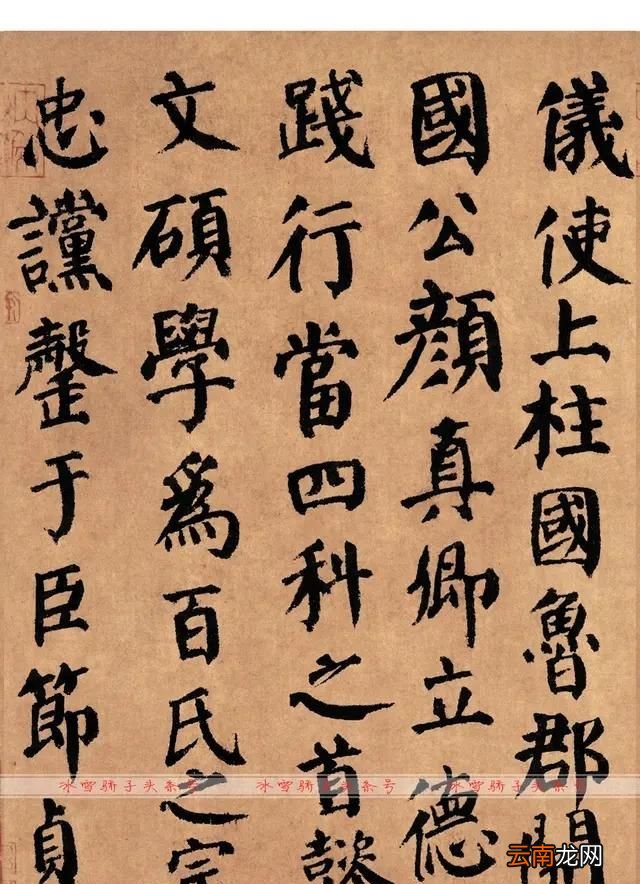 儀使上柱國魯郡開
國公顏真卿立德
踐行當四科之首懿
文碩學為百氏之宗
忠讜罄于臣節貞
冰雪骄子头条号 冰雪骄子头条号 冰雪骄子头条号
云南龙网